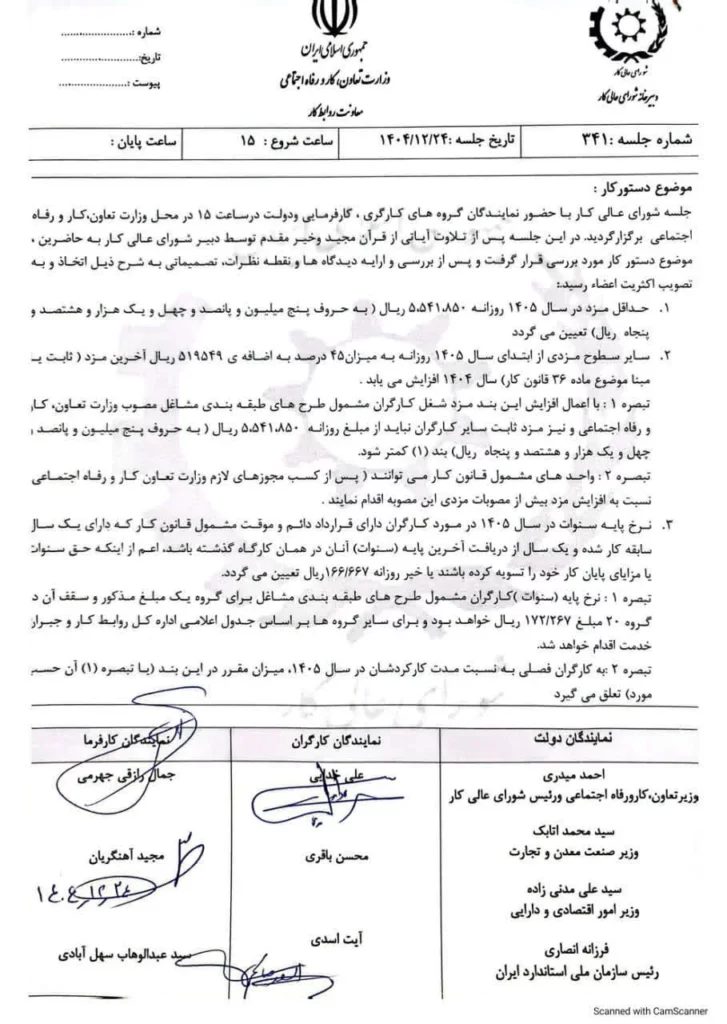 شماره :........................
تاریخ:........................
پیوست :........................
جمهوری اسلامی ایران
وزارت تعاون، کار و رفاه اجتماعی
معاونت روابط کار
شورای عالی کار
دبیرخانه شورای عالی کار
شماره جلسه :۳۴۱ تاریخ جلسه :۱۴۰۴/۱۲/۲۴ ساعت شروع : ۱۵ ساعت پایان :
موضوع دستورکار :
جلسه شورای عالی کار با حضور نمایندگان گروه های کارگری ، کارفرمایی ودولت درساعت ۱۵ در محل وزارت تعاون،کار و رفاه
اجتماعی برگزارگردید. در این جلسه پس از تلاوت آیاتی از قرآن مجید وخیر مقدم توسط دبیر شورای عالی کار به حاضرین ،
موضوع دستور کار مورد بررسی قرار گرفت و پس از بررسی و ارایه دیدگاه ها و نقطه نظرات، تصمیماتی به شرح ذیل اتخاذ و به
تصویب اکثریت اعضاء رسید:
۱. حداقل مزد در سال ۱۴۰۵ روزانه ۵،۵۴۱،۸۵۰ ریال ( به حروف پنج میلیون و پانصد و چهل و یک هزار و هشتصد و
پنجاه ریال) تعیین می گردد
۲. سایر سطوح مزدی از ابتدای سال ۱۴۰۵ روزانه به میزان۴۵ درصد به اضافه ی ۵۱۹۵۴۹ ریال آخرین مزد ( ثابت یـ
مبنا موضوع ماده ۳۶ قانون کار) سال ۱۴۰۴ افزایش می یابد .
تبصره ۱ : با اعمال افزایش این بند مزد شغل کارگران مشمول طرح های طبقه بندی مشاغل مصوب وزارت تعاون، کار
و رفاه اجتماعی و نیز مزد ثابت سایر کارگران نباید از مبلغ روزانه ۵،۵۴۱،۸۵۰ ریال ( به حروف پنج میلیون و پانصد و
چهل و یک هزار و هشتصد و پنجاه ریال) بند (۱) کمتر شود.
تبصره ۲ : واحد های مشمول قانون کار می توانند ( پس از کسب مجوزهای لازم وزارت تعاون کار و رفاه اجتماعی)
نسبت به افزایش مزد بیش از مصوبات مزدی این مصوبه اقدام نمایند .
۳. نرخ پایه سنوات در سال ۱۴۰۵ در مورد کارگران دارای قرارداد دائم و موقت مشمول قانون کار که دارای یک سال
سابقه کار شده و یک سال از دریافت آخرین پایه (سنوات) آنان در همان کارگاه گذشته باشد، اعم از اینکه حق سنوات
یا مزایای پایان کار خود را تسویه کرده باشند یا خیر روزانه ۱۶۶/۶۶۷ریال تعیین می گردد.
تبصره ۱ : نرخ پایه (سنوات )کارگران مشمول طرح های طبقه بندی مشاغل برای گروه یک مبلغ مذکور و سقف آن د
گروه ۲۰ مبلغ ۱۷۲/۲۶۷ ریال خواهد بود و برای سایر گروه ها بر اساس جدول اعلامی اداره کل روابط کار و جبران
خدمت اقدام خواهد شد.
تبصره ۲ :به کارگران فصلی به نسبت مدت کارکردشان در سال ۱۴۰۵، میزان مقرر در این بند (یا تبصره (۱) آن حسـ
مورد) تعلق می گیرد
شورای عالی کار
نمایندگان دولت نمایندگان کارگران نمایندگان کارفرما
احمد میدری علی خدایی جمال رازقی جهرمی
وزیرتعاون،کارورفاه اجتماعی ورئیس شورای عالی کار
سید محمد اتابک
وزیر صنعت معدن و تجارت محسن باقری مجید آهنگریان
۱۴۰۴،۱۲،۲۴
سید علی مدنی زاده
وزیر امور اقتصادی و دارایی
فرزانه انصاری آیت اسدی سید عبدالوهاب سهل آبادی
رئیس سازمان ملی استاندارد ایران
Scanned with CamScanner